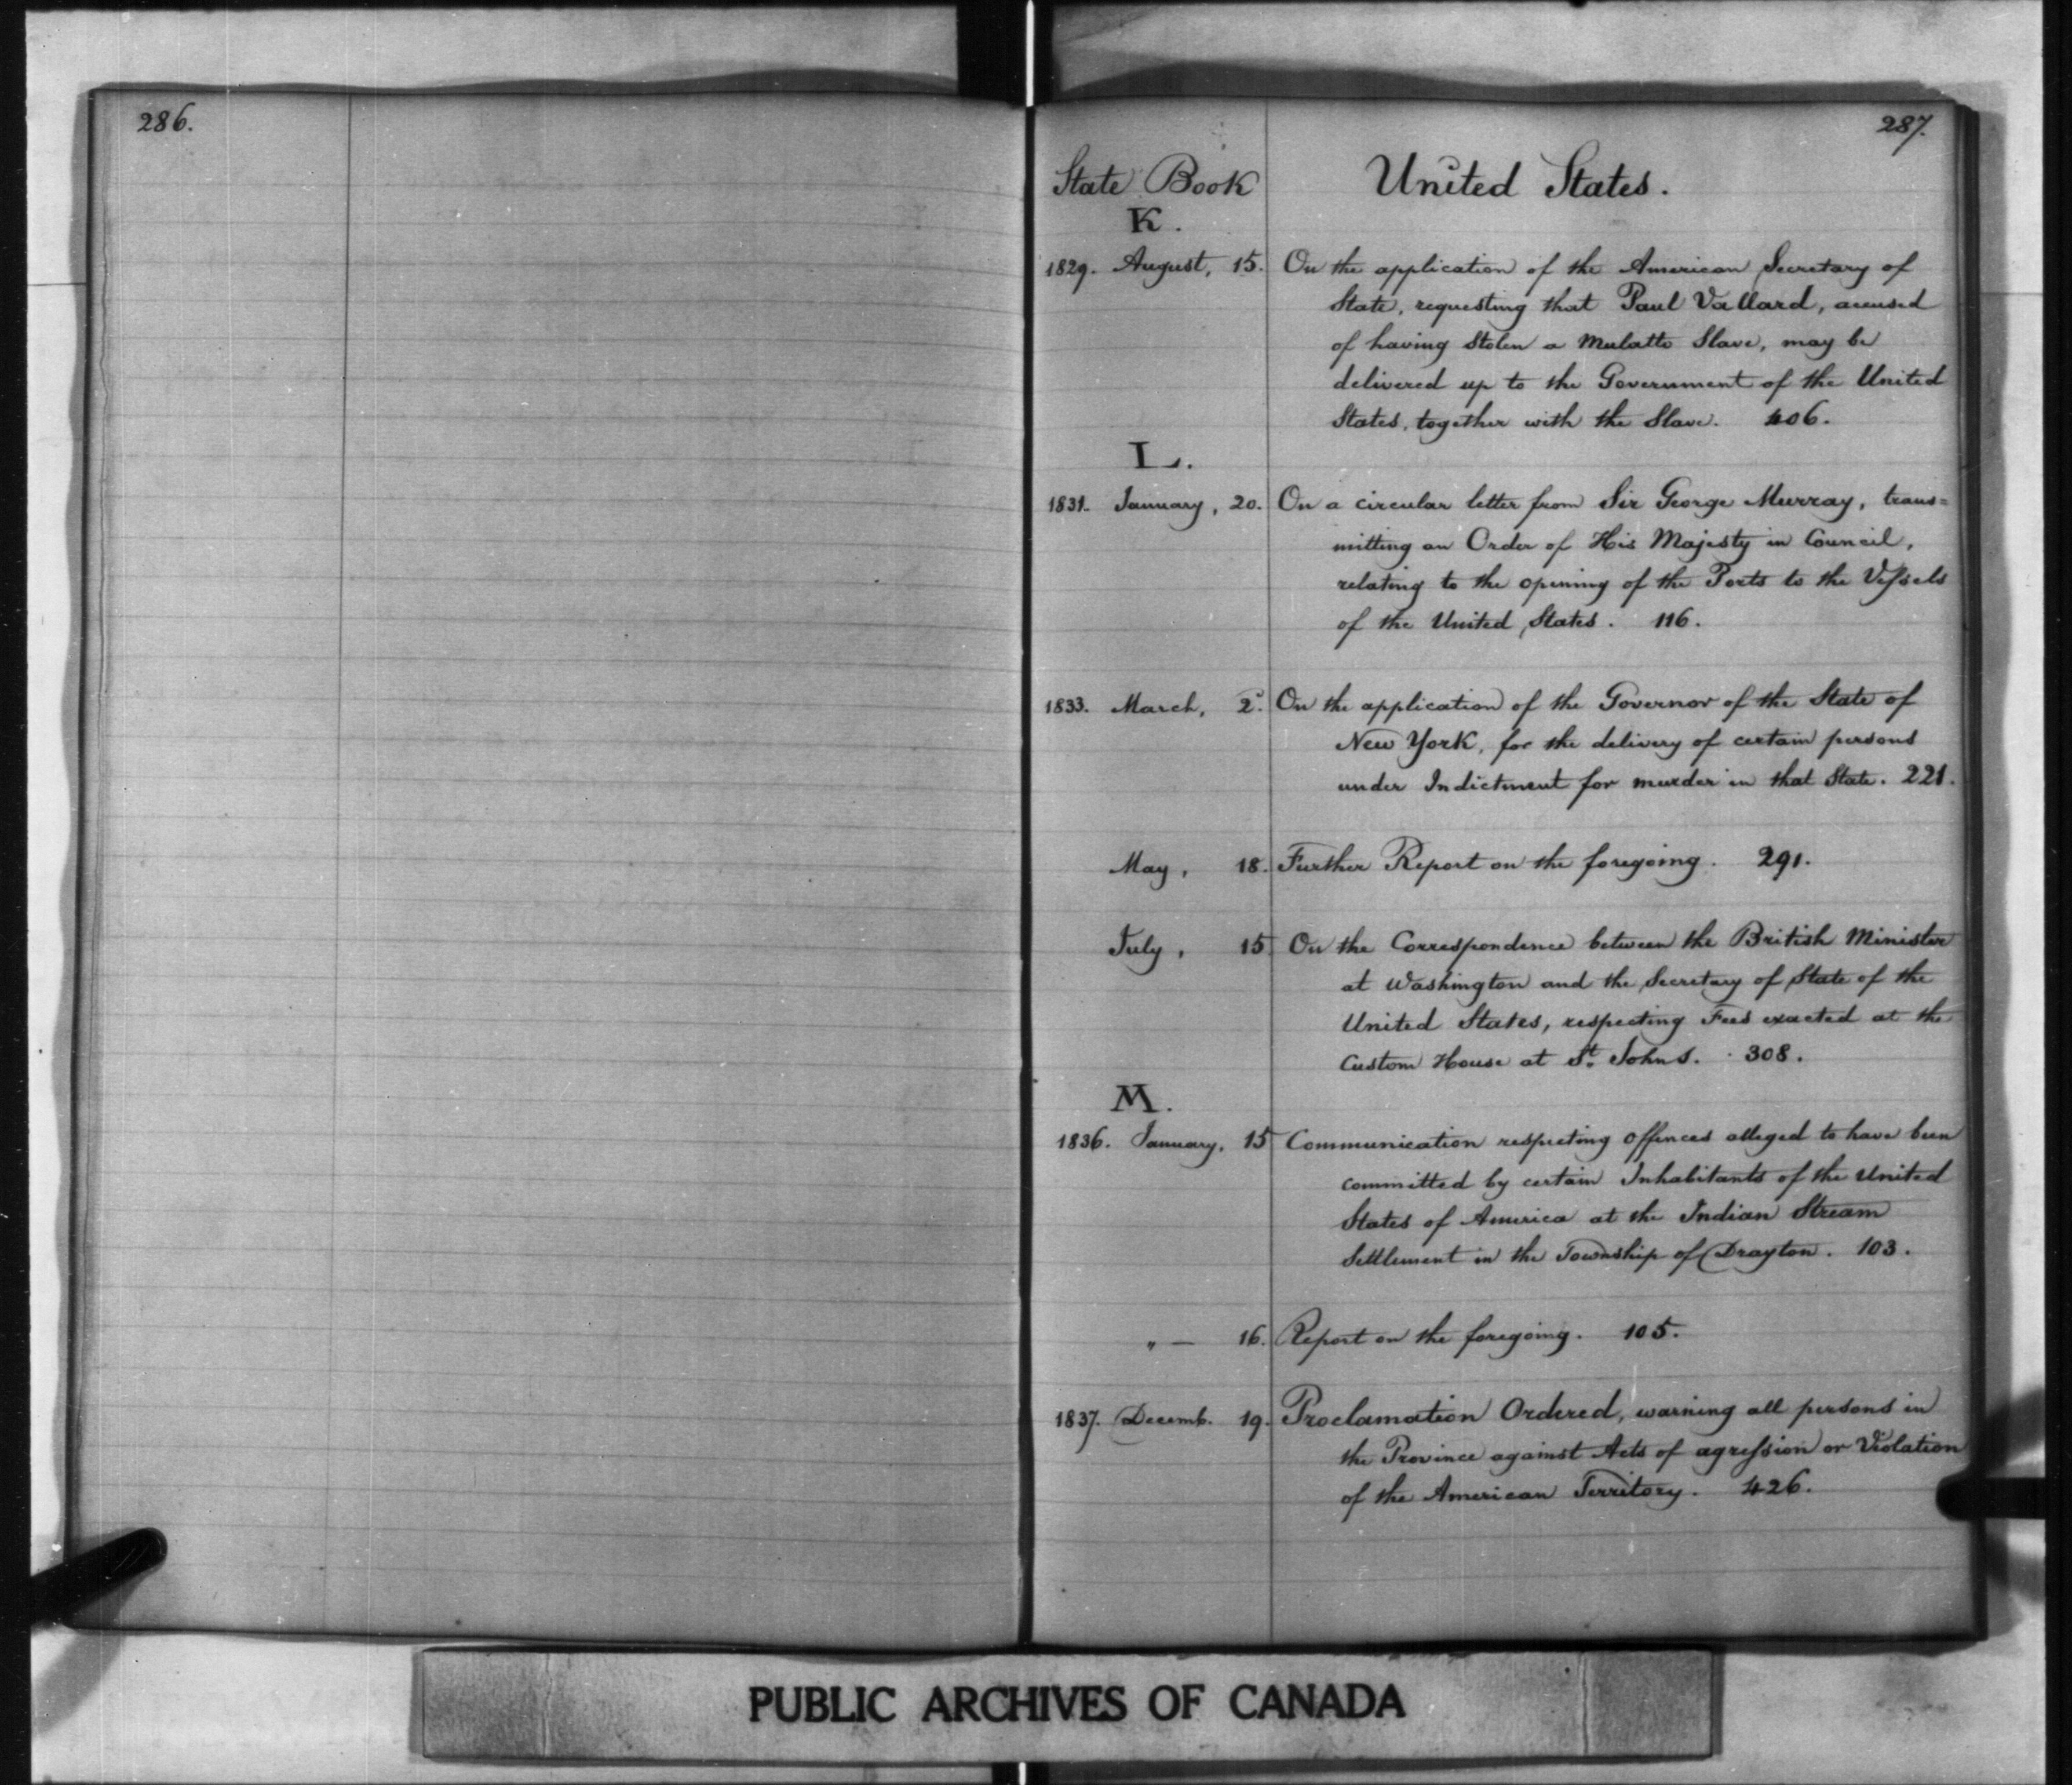 286.
287.
State Book
United States.
K.
1829. August, 15. On the application of the American Secretary of
State, requesting that Paul Vallard, accused
of having stolen a Mulatto Slave, may be
delivered up to the Government of the United
States, together with the Slave. 406.
L.
1831. January, 20. On a circular letter from Sir George Murray, trans=
mitting an Order of His Majesty in Council,
relating to the opening of the Ports to the Vessels
of the United States. 116.
1833. March, 2d. On the application of the Governor of the State of
New York, for the delivery of certain persons
under Indictment for murder in that State. 221.
May, 18. Further Report on the foregoing. 291.
July, 15 On the Correspondence between the British Minister
at Washington and the Secretary of State of the
United States, respecting Fees exacted at the
Custom House at St. Johns. 308.
M.
1836. January, 15 Communication respecting offences alleged to have been
committed by certain Inhabitants of the United
States of America at the Indian Stream
Settlement in the Township of Drayton. 103.
" — 16. Report on the foregoing. 105.
1837. Decemb. 19. Proclamation Ordered, warning all persons in
the Province against Acts of agression or Violation
of the American Territory. 426.
PUBLIC ARCHIVES OF CANADA